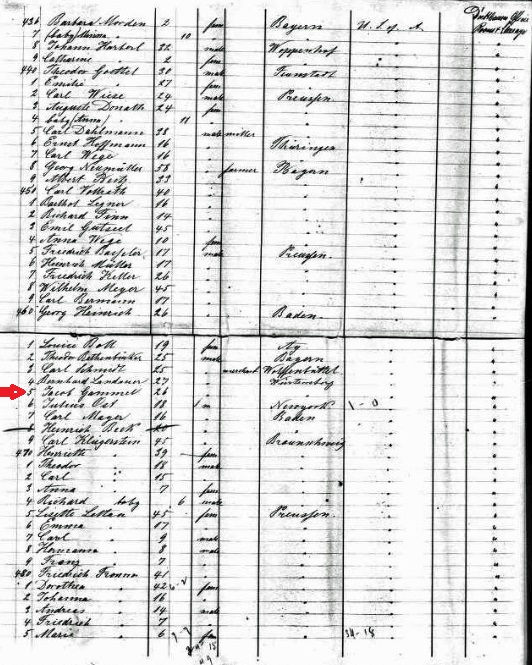 436 Barbara Morden 2 fem Bayern U.S. of A.
7 (baby) Minna " 10
8 Johann Harberl 32 male Woppenhof
9 Catharine " 2 fem
440 Theodor Goettel 30 male
1 Emilie " 27 fem
2 Carl Wiese 24 male Preussen
3 Auguste Donath 24 fem
4 baby (Anna) " 11
5 Carl Dahlmann 28 male miller
6 Ernst Hoffmann 16 Thüringen
7 Carl Wege 16
8 Georg Neumüller 38 farmer Bayern
9 Albert
450 Carl Vollrath 40
1 Barthol Legner 16
2 Richard Finn 14
3 Emil Gutseel 45
4 Anna Wege 10 fem
5 Friedrich Baessler 17 male Preussen
6 Heinrich Müller 17
7 Friedrich Keller 26
8 Wilhelm Meyer 45
9 Carl Bermann 17
460 Georg Heinrich 26 Baden
1 Louise Bott 19 fem
2 Theodor Rathenbücker 25 male Bayern
3 Carl Schmidt 25 merchant Wolfenbüttel
4 Bernhard Landauer 27 Würtemberg
5 Jacob Gammel 26
6 Julius Ost 18 m Newyork 1-0
7 Carl Mayer 16 Baden
8 Heinrich Beck 20
9 Carl Klügerstein 45 Braunschweig
470 Henriette " 39 fem
1 Theodor " 18 male
2 Carl " 15
3 Anna " 7 fem
4 Richard baby 6 male
5 Lisette Lettau 45 fem Preussen
6 Emma " 17
7 Carl " 9 male
8 Hermann " 8 male
9 Franz " 7
480 Friedrich Fromm 41
1 Dorothea " 42 fem
2 Johanna " 16
3 Andreas " 14 male
4 Friedrich " 7
5 Maria " 6 fem 34-15